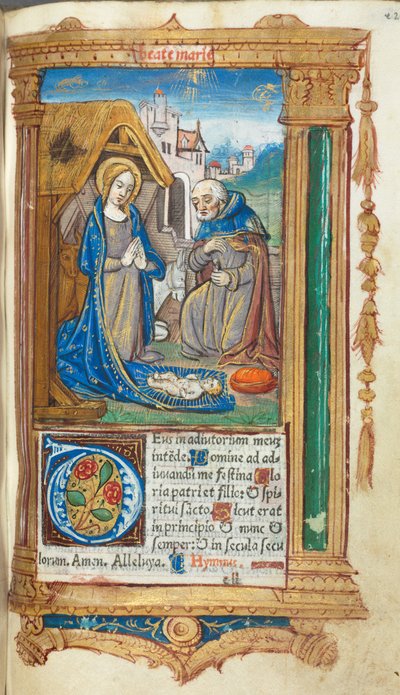 beate marie
Deus in adiutorium meuȝ
intēde. Domine ad ad
iuuandū me festina Glo
ria patri et filio: & spi
ritui sācto Sicut erat
in principio & nunc &
semper: & in secula secu
lorum. Amen. Alleluya. Hymnus.